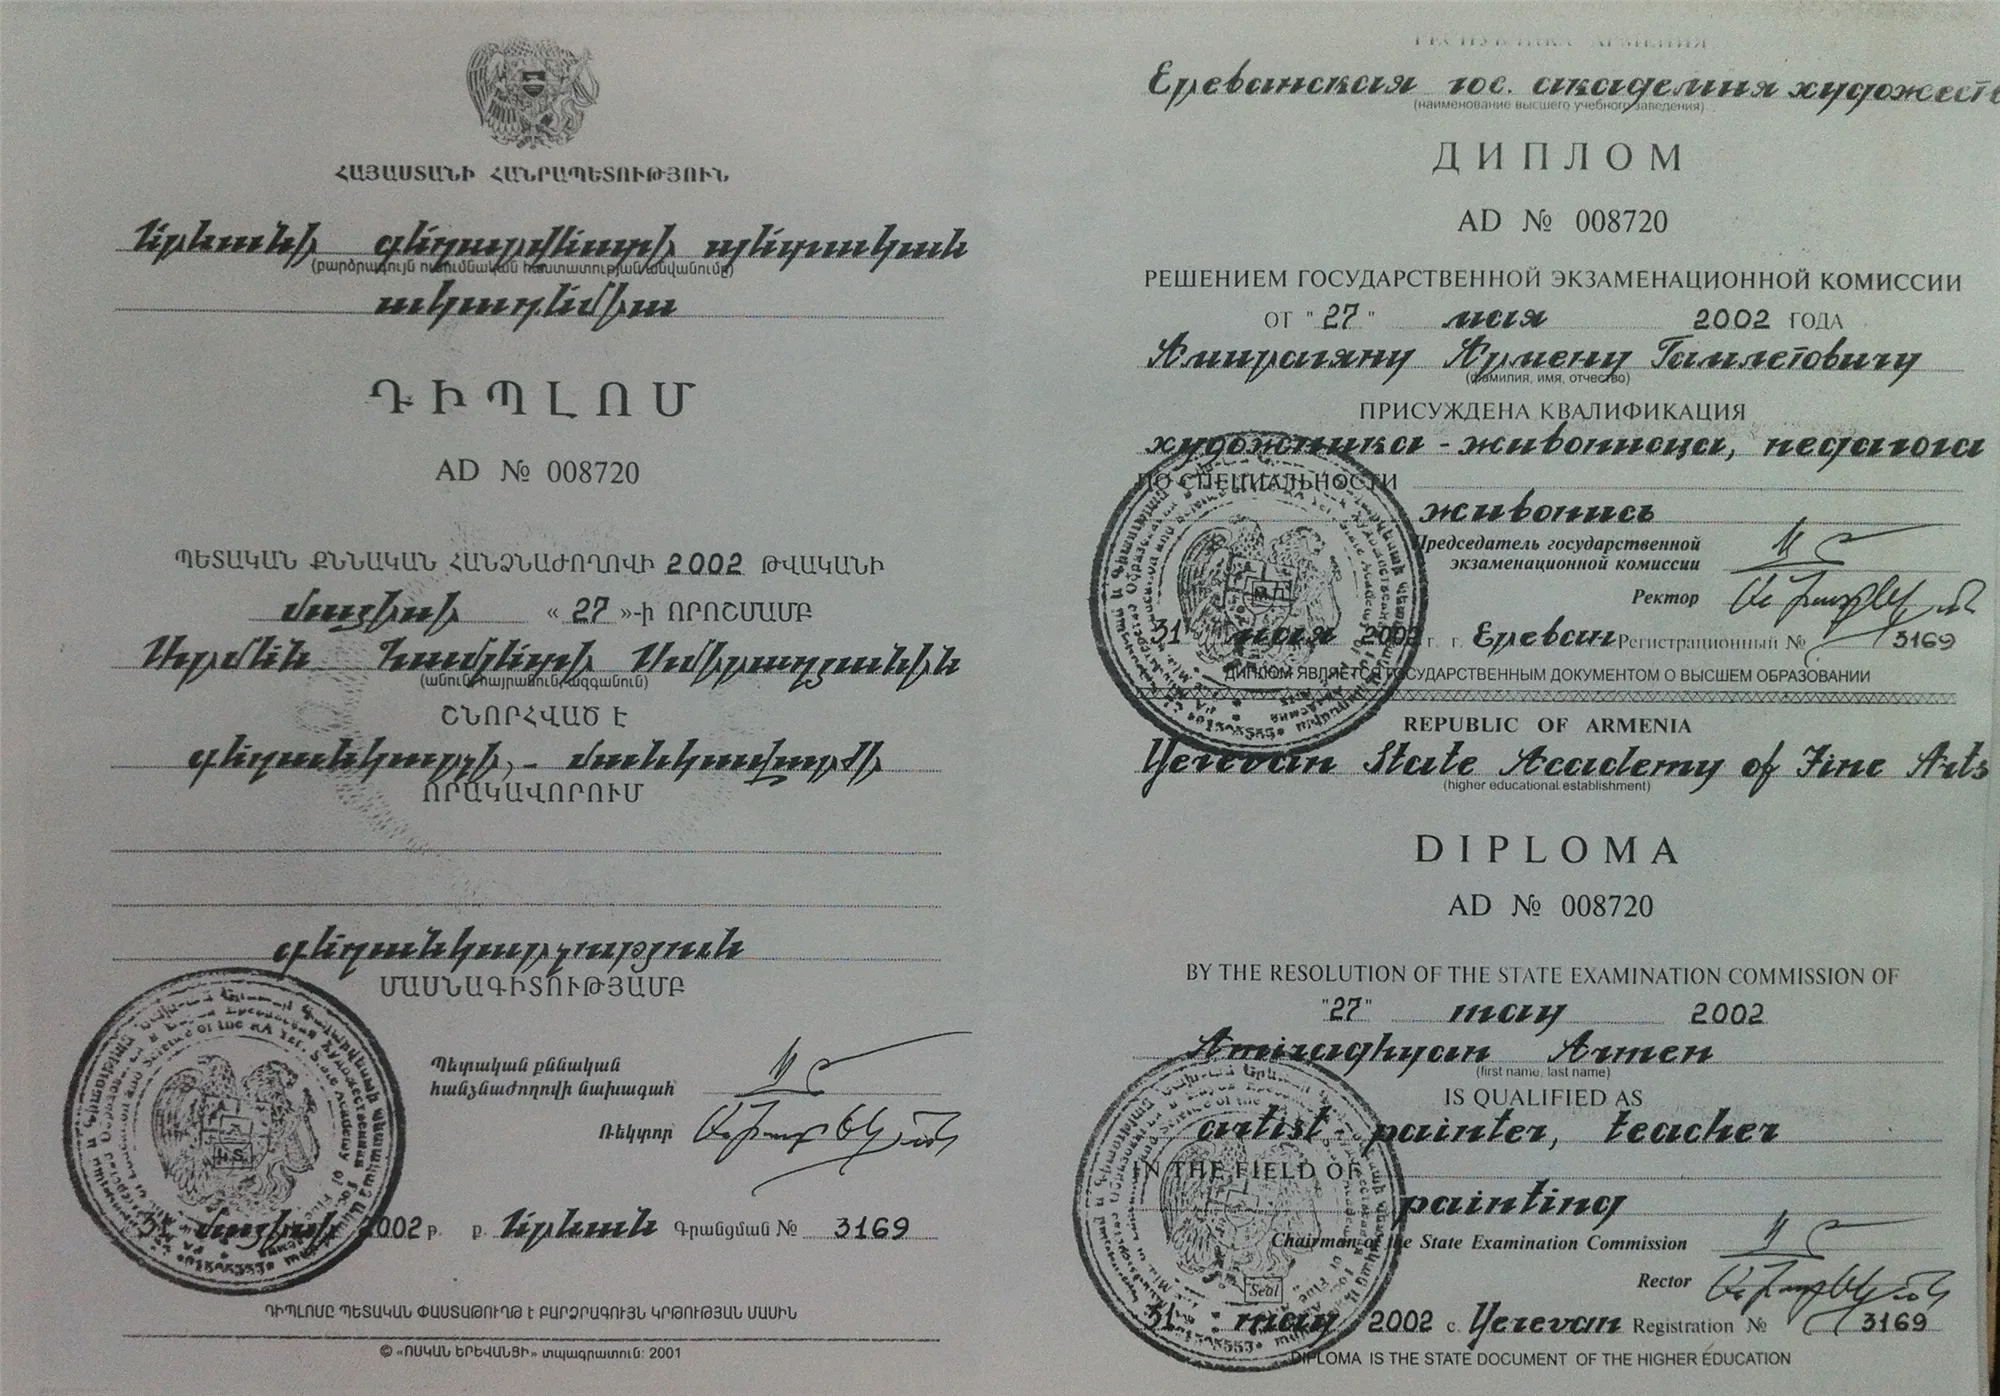 ՀԱՅԱՍՏԱՆԻ ՀԱՆՐԱՊԵՏՈՒԹՅՈՒՆ
Երևանի գեղարվեստի պետական
(բարձրագույն ուսումնական հաստատության անվանումը)
ակադեմիա
ԴԻՊԼՈՄ
AD № 008720
ՊԵՏԱԿԱՆ ՔՆՆԱԿԱՆ ՀԱՆՁՆԱԺՈՂՈՎԻ 2002 ԹՎԱԿԱՆԻ
մայիսի « 27 »-ի ՈՐՈՇՄԱՄԲ
Արմեն Համլետի Ամիրաղյանին
(անուն, հայրանուն, ազգանուն)
ՇՆՈՐՀՎԱԾ Է
գեղանկարչի, - մանկավարժի
ՈՐԱԿԱՎՈՐՈՒՄ
գեղանկարչություն
ՄԱՍՆԱԳԻՏՈՒԹՅԱՄԲ
Պետական քննական
հանձնաժողովի նախագահ
Ռեկտոր
31 մայիսի 2002 թ. ք. Երևան Գրանցման № 3169
ԴԻՊԼՈՄԸ ՊԵՏԱԿԱՆ ՓԱՍՏԱԹՈՒՂԹ է ԲԱՐՁՐԱԳՈՒՅՆ ԿՐԹՈՒԹՅԱՆ ՄԱՍԻՆ
© «ՈՍԿԱՆ ԵՐԵՎԱՆՑԻ» տպագրատուն: 2001
РЕСПУБЛИКА АРМЕНИЯ
Ереванская гос. академия художеств
(наименование высшего учебного заведения)
ДИПЛОМ
AD № 008720
РЕШЕНИЕМ ГОСУДАРСТВЕННОЙ ЭКЗАМЕНАЦИОННОЙ КОМИССИИ
ОТ " 27 " мая 2002 ГОДА
Амирагяну Армену Гамлетовичу
(фамилия, имя, отчество)
ПРИСУЖДЕНА КВАЛИФИКАЦИЯ
художника - живописца, педагога
ПО СПЕЦИАЛЬНОСТИ
живопись
Председатель государственной
экзаменационной комиссии
Ректор
31 мая 2002 г. г. Ереван Регистрационный № 3169
ДИПЛОМ ЯВЛЯЕТСЯ ГОСУДАРСТВЕННЫМ ДОКУМЕНТОМ О ВЫСШЕМ ОБРАЗОВАНИИ
REPUBLIC OF ARMENIA
Yerevan State Academy of Fine Arts
(higher educational establishment)
DIPLOMA
AD № 008720
BY THE RESOLUTION OF THE STATE EXAMINATION COMMISSION OF
"27" may 2002
Amiraghyan Armen
(first name, last name)
IS QUALIFIED AS
artist - painter, teacher
IN THE FIELD OF
painting
Chairman of the State Examination Commission
Rector
Seal
31 may 2002 c. Yerevan Registration № 3169
DIPLOMA IS THE STATE DOCUMENT OF THE HIGHER EDUCATION